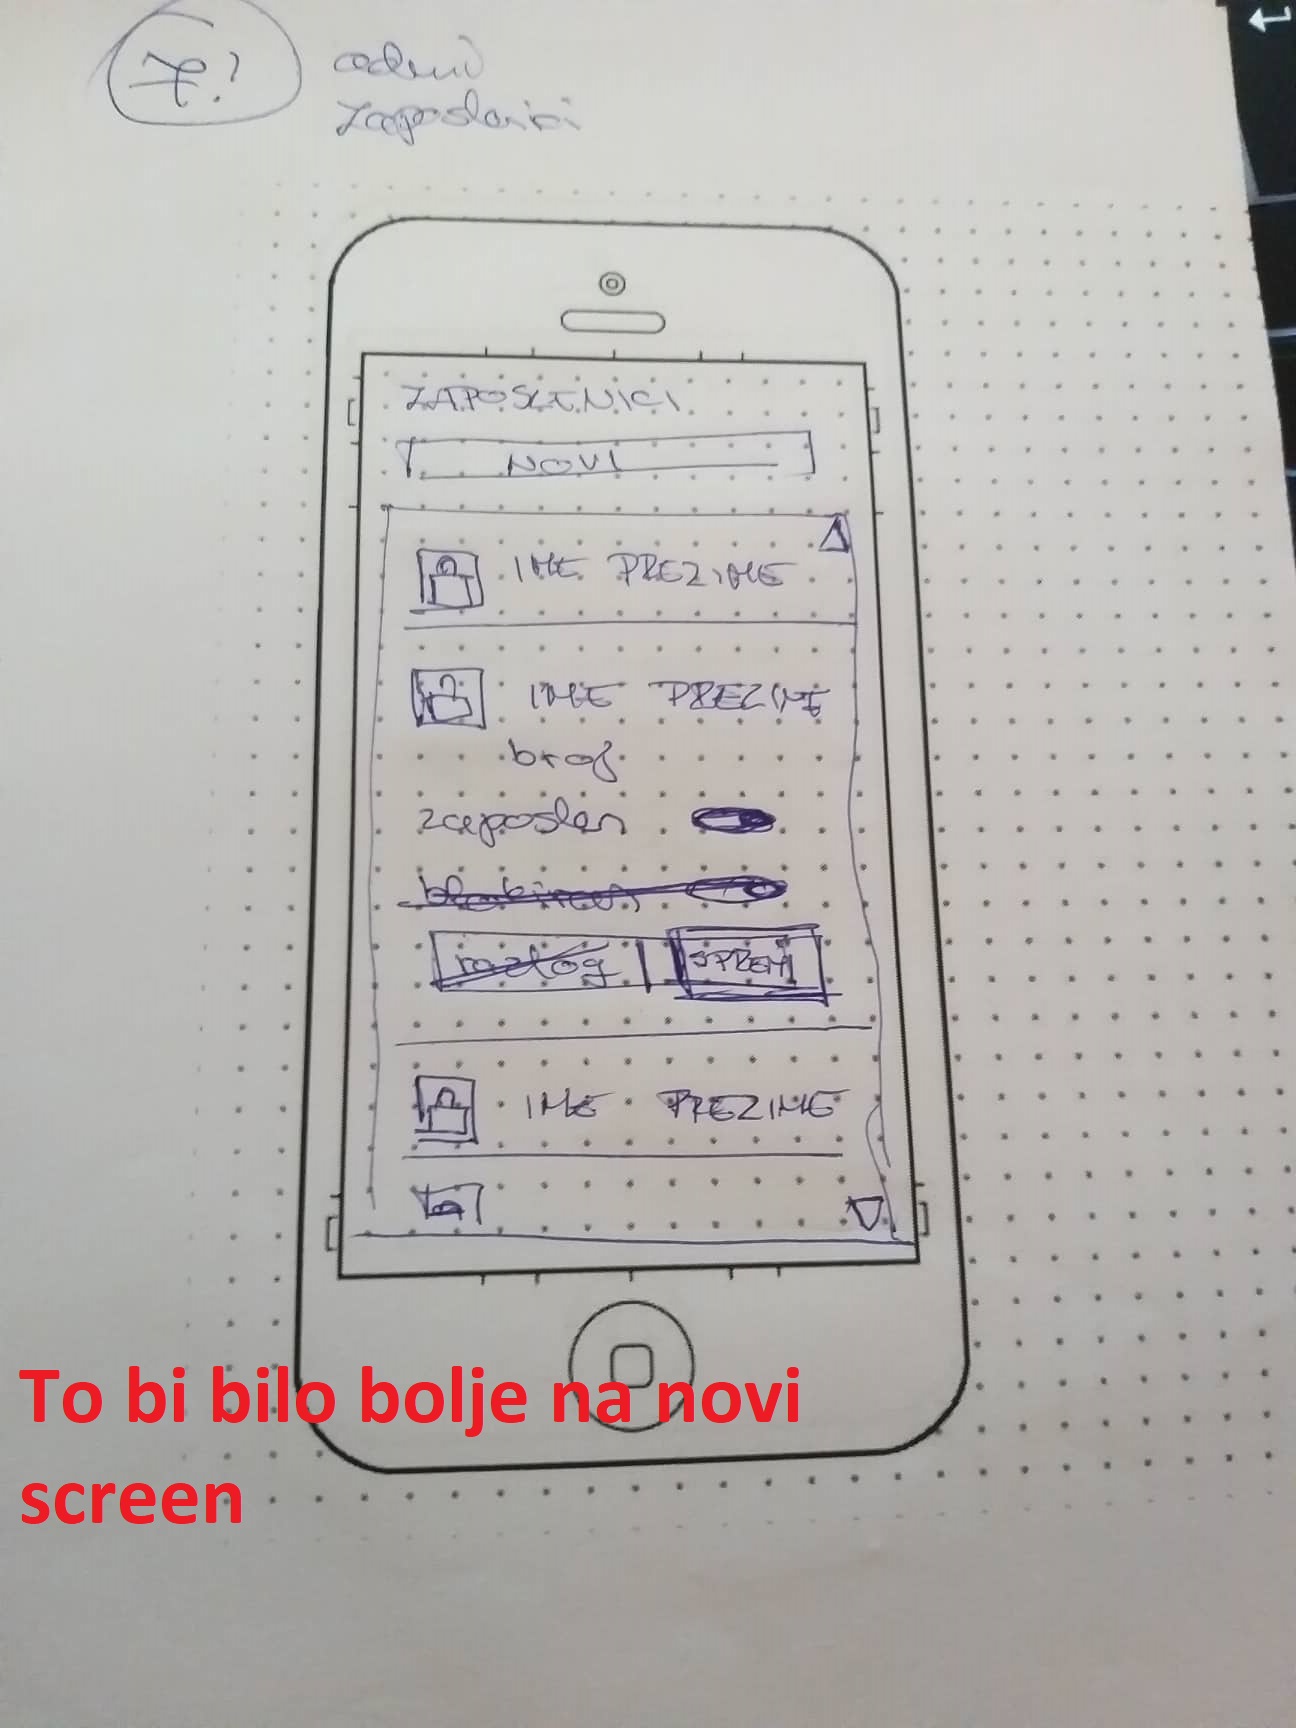 7!
admin
Zaposlenici
ZAPOSLENICI
NOVI
IME PREZIME
IME PREZIME
broj
zaposlen
blokiran
razlog SPREMI
IME PREZIME
To bi bilo bolje na novi
screen